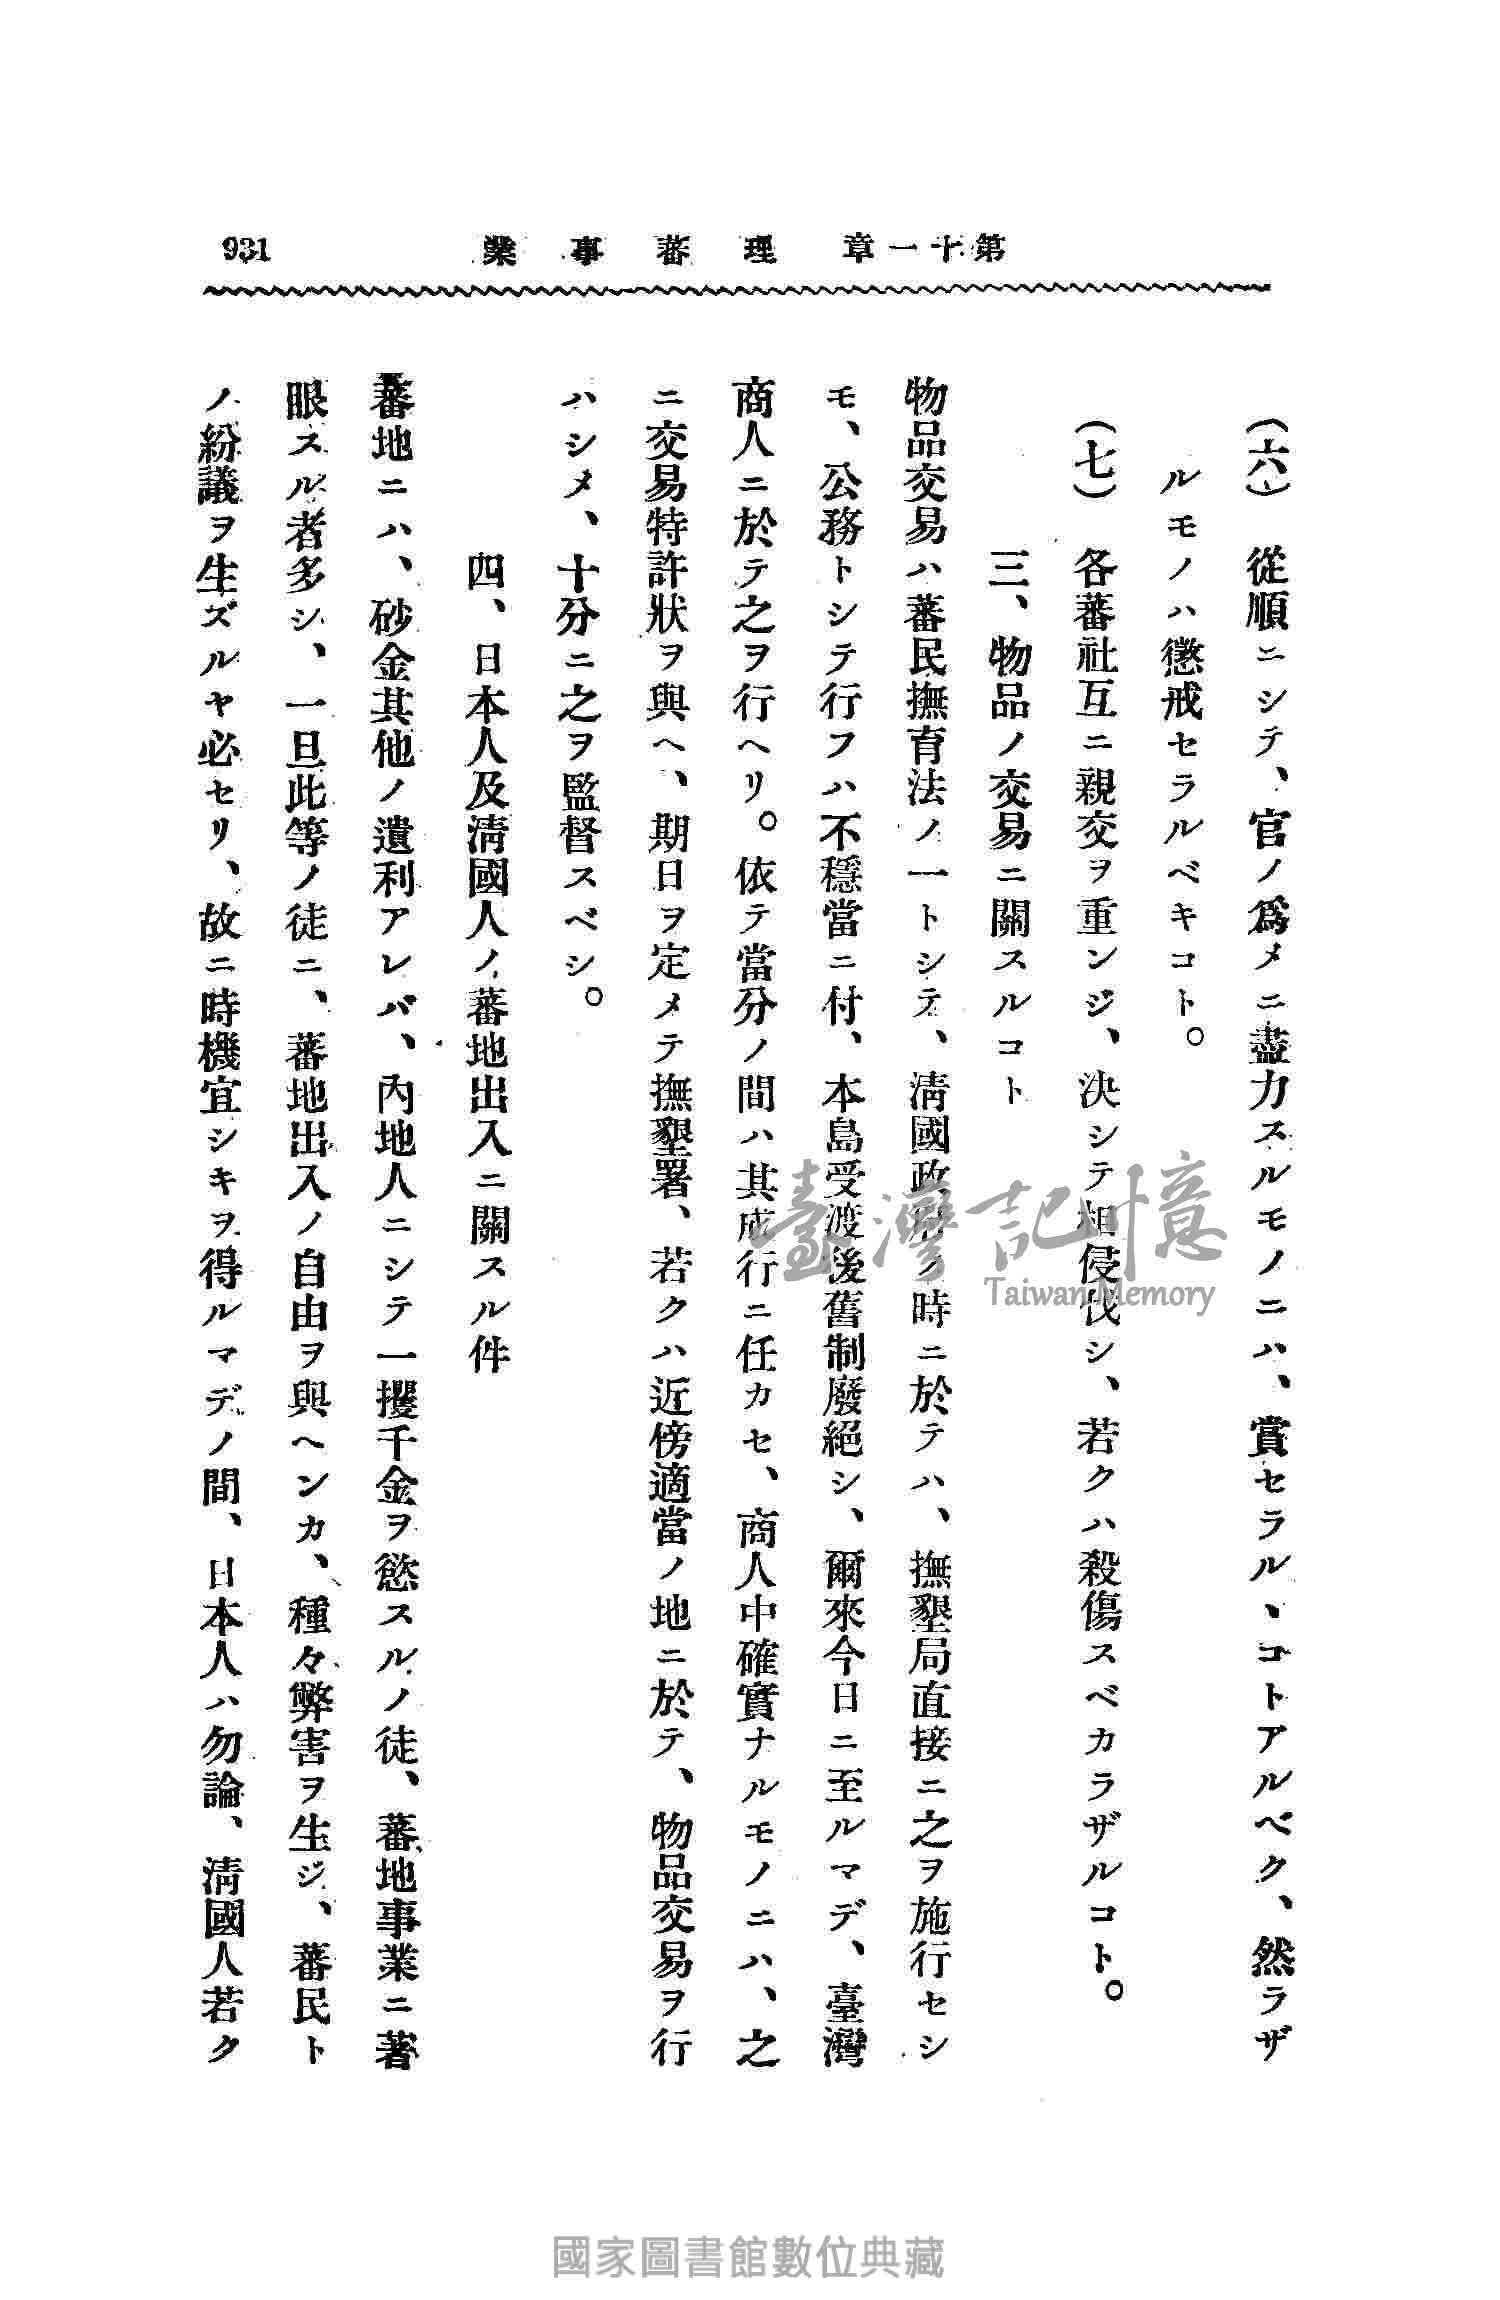 第十一章 理蕃事業
931
(六) 從順ニシテ、官ノ爲メニ盡力スルモノニハ、賞セラル、コトアルベク、然ラザ
ルモノハ懲戒セラルベキコト。
(七) 各蕃社互ニ親交ヲ重ンジ、決シテ相侵伐シ、若クハ殺傷スベカラザルコト。
三、物品ノ交易ニ關スルコト
物品交易ハ蕃民撫育法ノ一トシテ、淸國政府ノ時ニ於テハ、撫墾局直接ニ之ヲ施行セシ
モ、公務トシテ行フハ不穩當ニ付、本島受渡後舊制廢絕シ、爾來今日ニ至ルマデ、臺灣
商人ニ於テ之ヲ行ヘリ。依テ當分ノ間ハ其成行ニ任カセ、商人中確實ナルモノニハ、之
ニ交易特許狀ヲ與ヘ、期日ヲ定メテ撫墾署、若クハ近傍適當ノ地ニ於テ、物品交易ヲ行
ハシメ、十分ニ之ヲ監督スベシ。
四、日本人及淸國人ノ蕃地出入ニ關スル件
蕃地ニハ、砂金其他ノ遺利アレバ、內地人ニシテ一攫千金ヲ慾スルノ徒、蕃地事業ニ著
眼スル者多シ、一旦此等ノ徒ニ、蕃地出入ノ自由ヲ與ヘンカ、種々弊害ヲ生ジ、蕃民ト
ノ紛議ヲ生ズルヤ必セリ、故ニ時機宜シキヲ得ルマデノ間、日本人ハ勿論、淸國人若ク
臺灣記憶
Taiwan Memory
國家圖書館數位典藏